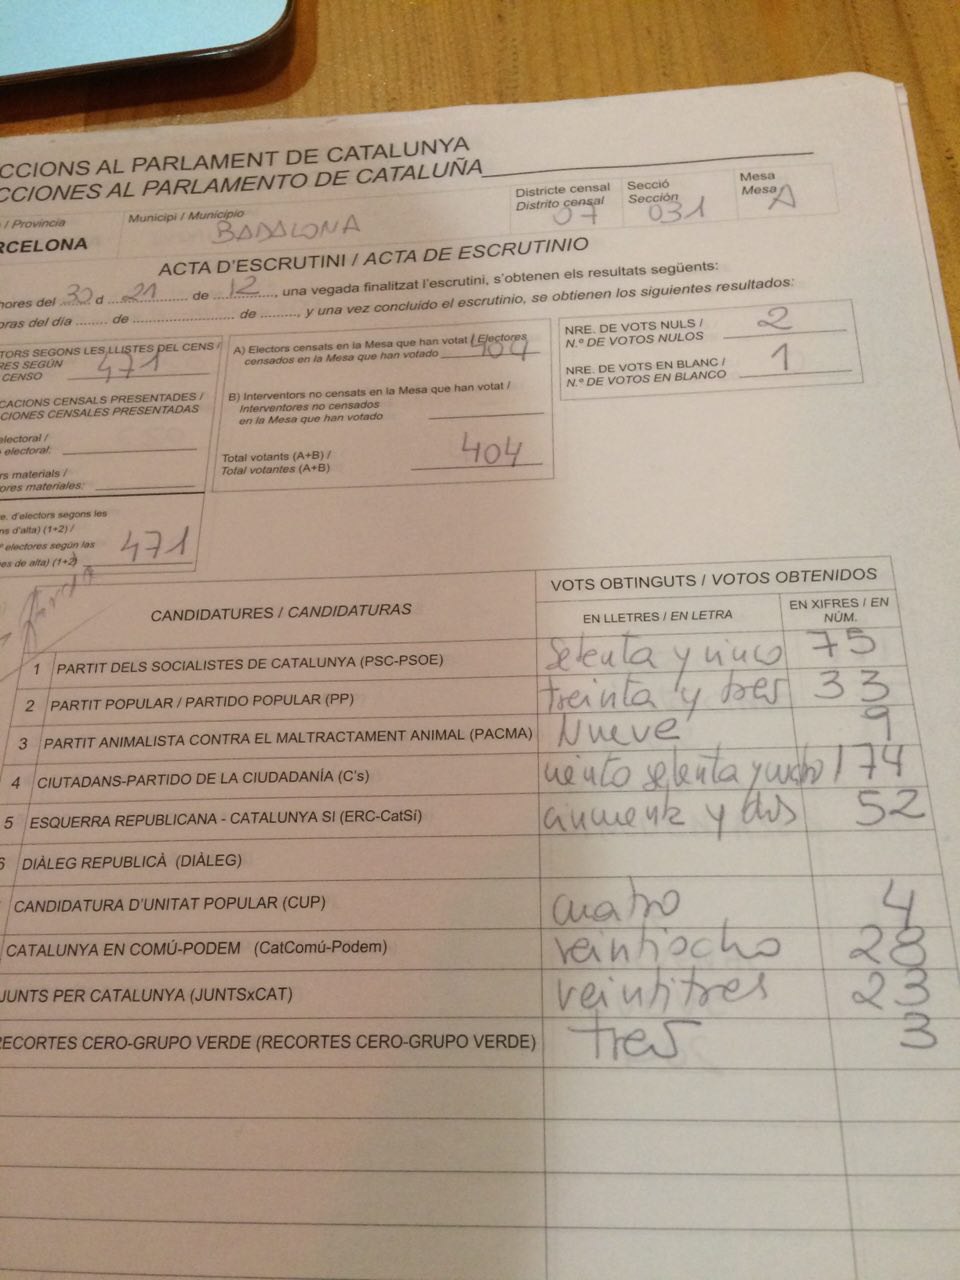 CCIONS AL PARLAMENT DE CATALUNYA
CCIONES AL PARLAMENTO DE CATALUÑA
/ Provincia
RCELONA
Municipi / Municipio
BADALONA
Districte censal
Distrito censal
07
Secció
Sección
031
Mesa
Mesa
A
ACTA D'ESCRUTINI / ACTA DE ESCRUTINIO
hores del 30 d 21 de 12, una vegada finalitzat l'escrutini, s'obtenen els resultats següents:
oras del día ........ de ........ de ........, y una vez concluido el escrutinio, se obtienen los siguientes resultados:
TORS SEGONS LES LLISTES DEL CENS /
RES SEGÚN
CENSO 471
CACIONS CENSALS PRESENTADES /
CIONES CENSALES PRESENTADAS
electoral /
electoral:
rs materials /
ores materiales:
e. d'electors segons les
ns d'alta) (1+2) /
º electores según las
es de alta) (1+2) 471
A) Electors censats en la Mesa que han votat / Electores
censados en la Mesa que han votado 404
B) Interventors no censats en la Mesa que han votat /
Interventores no censados
en la Mesa que han votado
Total votants (A+B) /
Total votantes (A+B) 404
NRE. DE VOTS NULS /
N.º DE VOTOS NULOS 2
NRE. DE VOTS EN BLANC /
N.º DE VOTOS EN BLANCO 1
CANDIDATURES / CANDIDATURAS
VOTS OBTINGUTS / VOTOS OBTENIDOS
EN LLETRES / EN LETRA
EN XIFRES / EN
NÚM.
1 PARTIT DELS SOCIALISTES DE CATALUNYA (PSC-PSOE) Setenta y cinco 75
2 PARTIT POPULAR / PARTIDO POPULAR (PP) treinta y tres 33
3 PARTIT ANIMALISTA CONTRA EL MALTRACTAMENT ANIMAL (PACMA) Nueve 9
4 CIUTADANS-PARTIDO DE LA CIUDADANÍA (C's) ciento setenta y cuatro 174
5 ESQUERRA REPUBLICANA - CATALUNYA SI (ERC-CatSí) cincuenta y dos 52
6 DIÀLEG REPUBLICÀ (DIÀLEG)
CANDIDATURA D'UNITAT POPULAR (CUP) cuatro 4
CATALUNYA EN COMÚ-PODEM (CatComú-Podem) veintiocho 28
JUNTS PER CATALUNYA (JUNTSxCAT) veintitres 23
RECORTES CERO-GRUPO VERDE (RECORTES CERO-GRUPO VERDE) tres 3